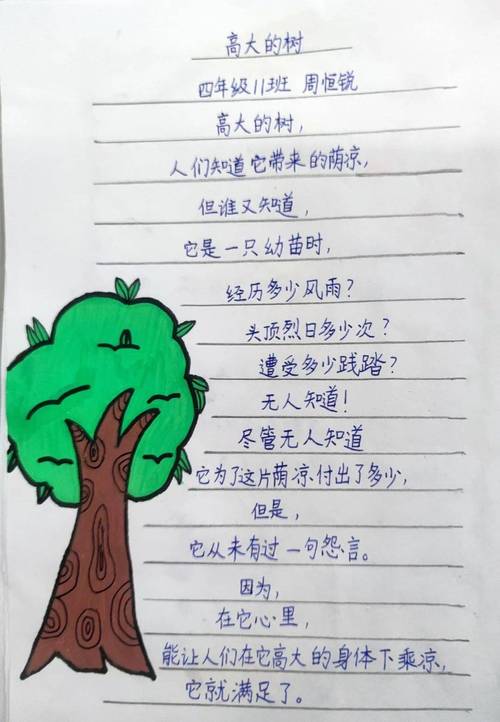 高大的树
四年级11班 周恒锐
高大的树，
人们知道它带来的荫凉，
但谁又知道，
它是一只幼苗时，
经历多少风雨？
头顶烈日多少次？
遭受多少践踏？
无人知道！
尽管无人知道
它为了这片荫凉付出了多少，
但是，
它从未有过一句怨言。
因为，
在它心里，
能让人们在它高大的身体下乘凉，
它就满足了。